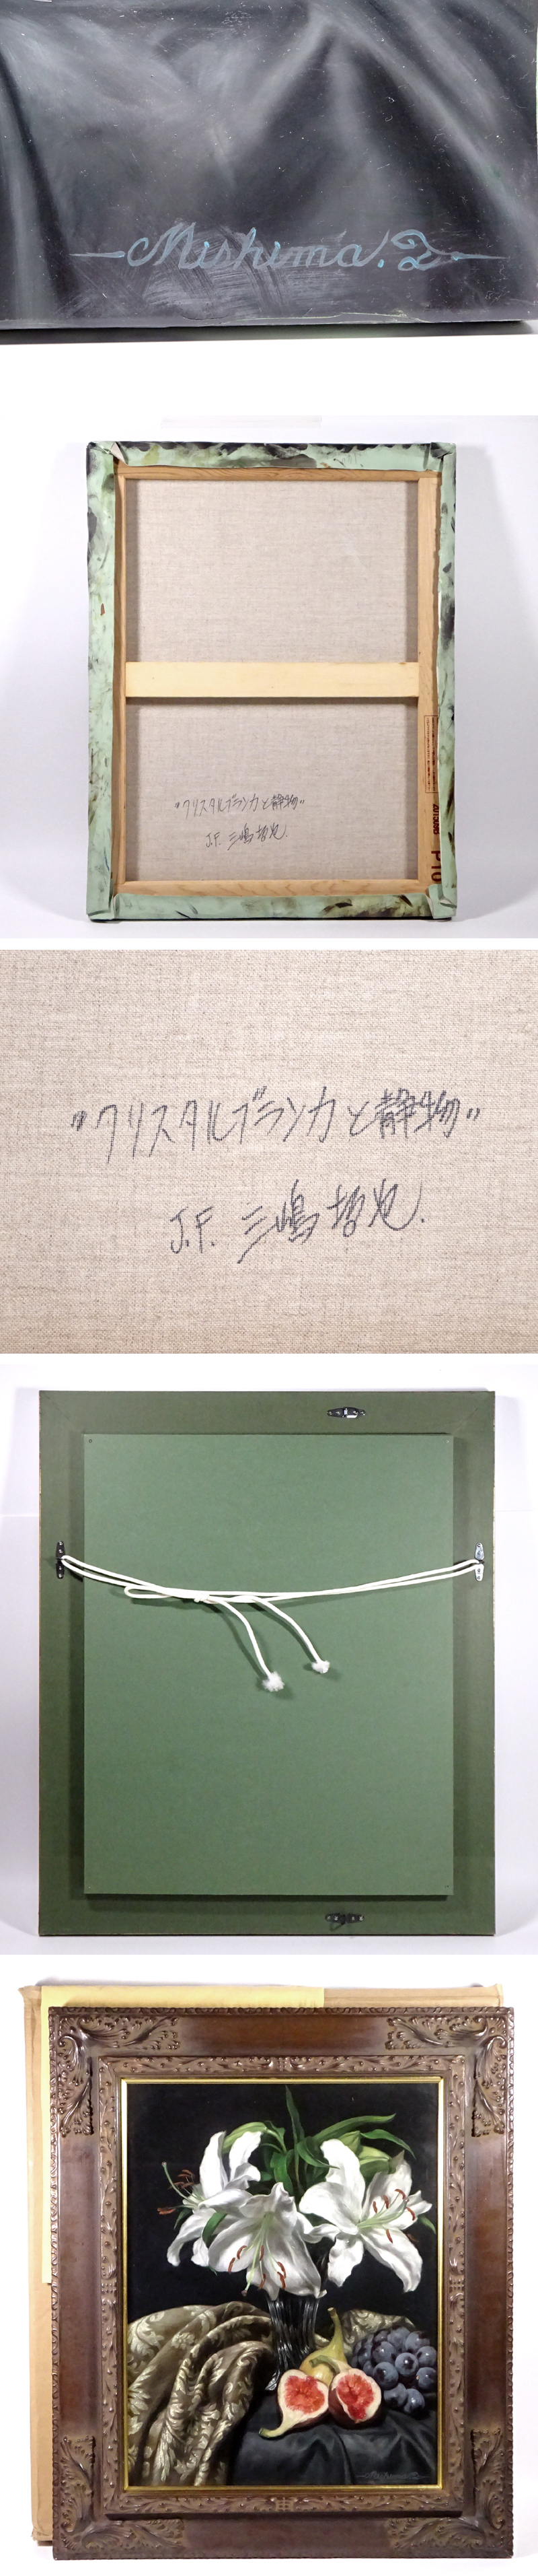 Mishima. T
"クリスタルブランカと静物"
J.F. 三嶋哲也.
P10
"クリスタルブランカと静物"
J.F. 三嶋哲也.